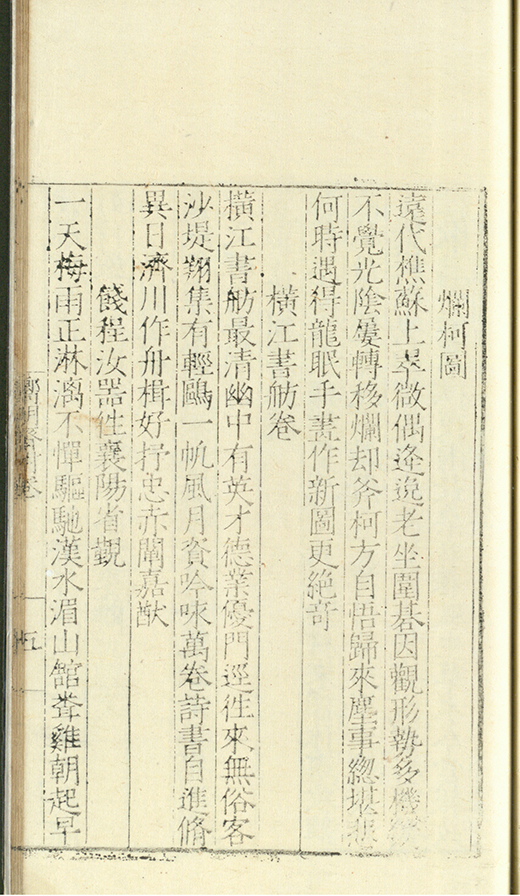 爛柯圖
遠代樵蘇上翠微偶逢逸老坐圍碁因觀形勢多機
不覺光陰屢轉移爛却斧柯方自悟歸來塵事總堪
何時遇得龍眠手畫作新圖更絶奇
橫江書舫卷
橫江書舫最清幽中有英才德業優門逕往來無俗客
沙堤翔集有輕鷗一帆風月資吟咏萬卷詩書自進脩
異日濟川作舟楫好抒忠赤闡嘉猷
餞程汝器往襄陽省觀
一天梅雨正淋漓不憚驅馳漢水湄山館聾雞朝起早
五